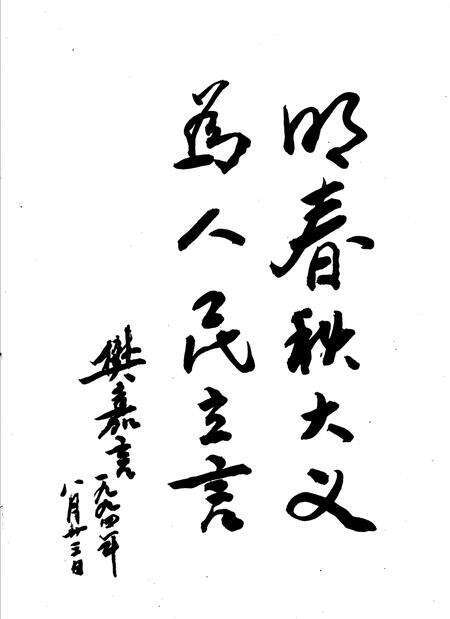 明春秋大义
为人民立言
樊嘉言
一九九四年
八月廿三日